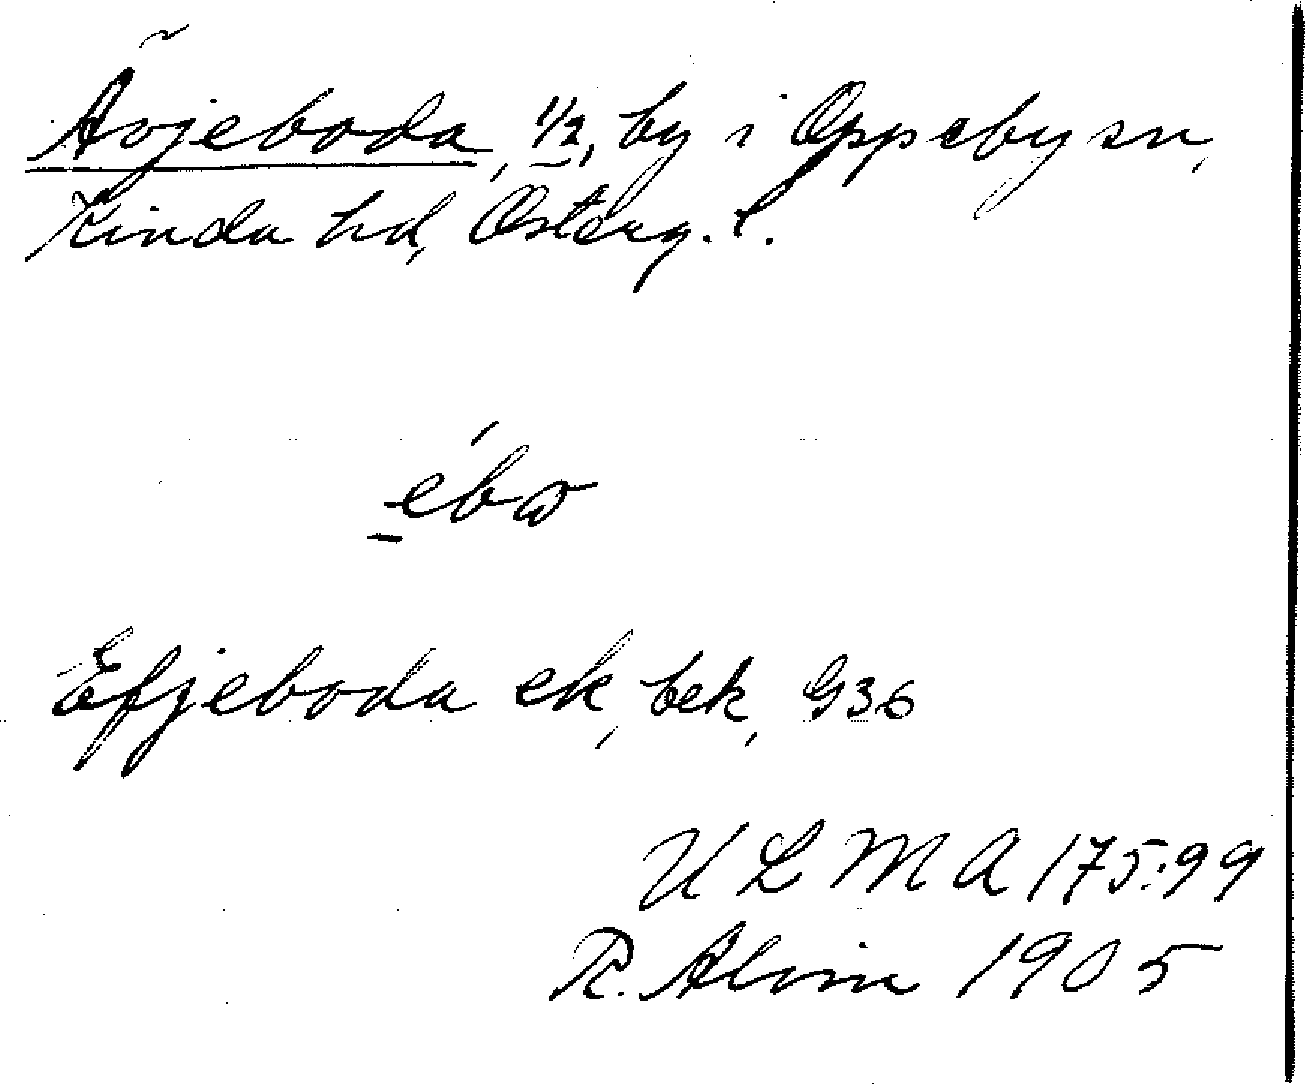 Ävjeboda, 1/2, by i Oppeby sn,
Kinda hd, Österg. l.
ébω
Efjeboda ek, bek, G36
ULMA 175:99
R. Alvin 1905